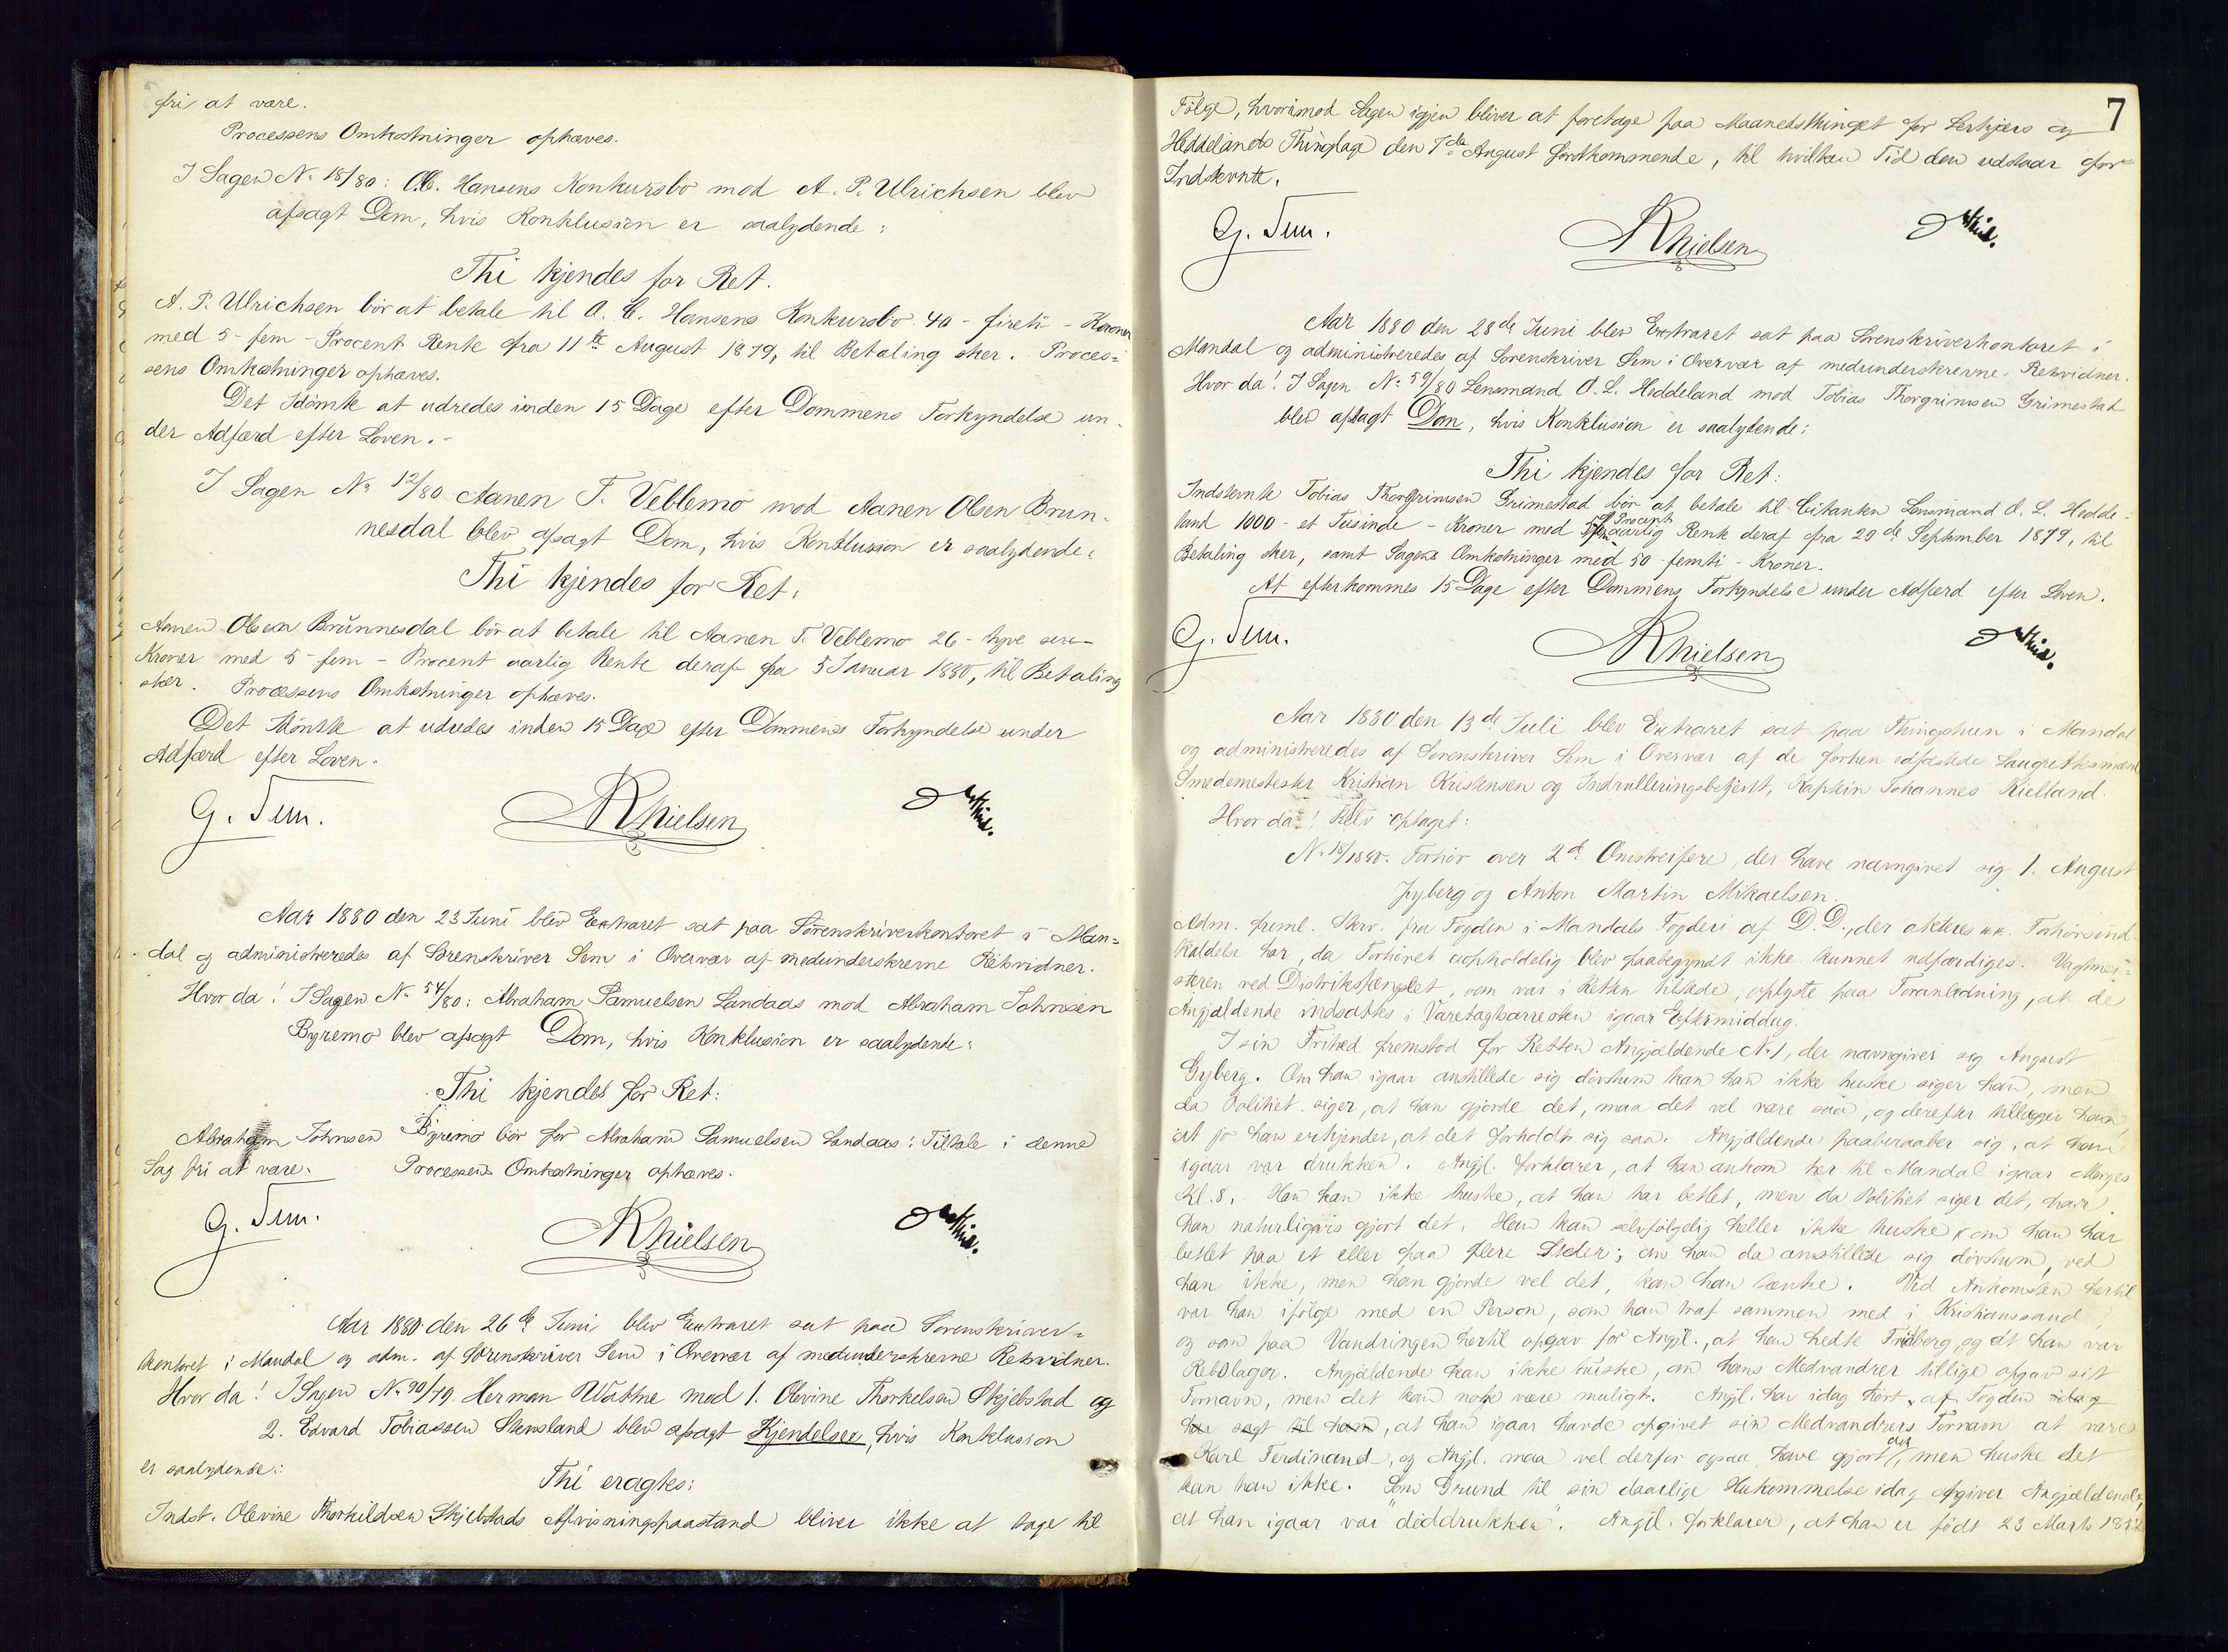 fri at være.
Processens Omkostninger ophæves.
I Sagen No 18/80: O. C. Hansens Konkursbo mod A. P. Ulrichsen blev
afsagt Dom, hvis Konklusion er saalydende:
Thi kjendes for Ret.
A. P. Ulrichsen bør at betale til O. C. Hansens Konkursbo 40 - fireti - Kroner
med 5 - fem - Procent Rente fra 11te August 1879, til Betaling sker. Proces-
sens Omkostninger ophæves.
Det Idømte at udredes inden 15 Dage efter Dommens Forkyndelse un-
der Adfærd efter Loven. -
I Sagen No 12/80 Aanen T. Veblemo mod Aanen Olsen Brun-
nesdal blev afsagt Dom, hvis Konklusion er saalydende:
Thi kjendes for Ret:
Aanen Olsen Brunnesdal bør at betale til Aanen T. Veblemo 26 - tyve sex -
Kroner med 5 - fem - Procent aarlig Rente deraf fra 5 Januar 1880, til Betaling
sker. Processens Omkostninger ophæves.
Det Idømte at udredes inden 15 Dage efter Dommens Forkyndelse under
Adfærd efter Loven.
G. Sem. R Nielsen
Aar 1880 den 23 Juni blev Extraret sat paa Sorenskriverkontoret i Man-
dal og administreredes af Sorenskriver Sem i Overvær af medunderskrevne Retsvidner.
Hvor da! I Sagen No 54/80: Abraham Samuelsen Landaas mod Abraham Johnsen
Byremo blev afsagt Dom, hvis Konklusion er saalydende:
Thi kjendes for Ret:
Abraham Johnsen Byremo bør for Abraham Samuelsen Landaas: Tiltale i denne
Sag fri at være. Processens Omkostninger ophæves.
G. Sem. R Nielsen
Aar 1880 den 26de Juni blev Extraret sat paa Sorenskriver-
kontoret i Mandal og adm. af Sorenskriver Sem i Overvær af medunderskrevne Retsvidner.
Hvor da! I Sagen No 90/79. Herman Wattne mod 1. Olevine Thorkelsen Skjebstad og
2. Edvard Tobiassen Stensland blev afsagt Kjendelse, hvis Konklusion
er saalydende:
Thi eragtes:
Indst. Olevine Thorkildsen Skjebstads Afvisningspaastand bliver ikke at tage til
7
Følge, hvorimod Sagen igjen bliver at foretage paa Maanedsthinget for og
Heddelands Thinglag den 7de August førstkommende, til hvilken Tid den udstaar for
Indstevnte.
G. Sem. R Nielsen
Aar 1880 den 28de Juni blev Extraret sat paa Sorenskriverkontoret i
Mandal og administreredes af Sorenskriver Sem i Overvær af medunderskrevne Retsvidner.
Hvor da! I Sagen No 59/80 Lensmand O. L. Heddeland mod Tobias Thorgrimsen Grimestad
blev afsagt Dom, hvis Konklusion er saalydende:
Thi kjendes for Ret:
Indstevnte Tobias Thorgrimsen Grimestad bør at betale til Citanten Lensmand O. L. Hedde-
land 1000 - et Tusinde - Kroner med Procent aarlig Rente deraf fra 29de September 1879, til
Betaling sker, samt Sagens Omkostninger med 50 - femti - Kroner.
At efterkommes 15 Dage efter Dommens Forkyndelse under Adfærd efter Loven.
G. Sem. R Nielsen
Aar 1880 den 13de Juli blev Extraret sat paa Thingstuen i Mandal
og administreredes af Sorenskriver Sem i Overvær af de forhen edfæstede Laugrettesmænd
Smedemester Kristian Kristensen og Indrulleringsbetjent, Kaptein Johannes Kielland.
Hvor da! Blev optaget:
No 18/1880. Forhør over 2de Omstreifere, der have navngivet sig 1. August
Gyberg og Anton Martin Mikaelsen.
Adm. freml. Skrv. fra Fogden i Mandals Fogderi af D. D., der akteres Forhørsind-
kaldelse har, da Forhøret uopholdelig blev paabegyndt ikke kunnet udfærdiges. Vagtmei-
steren ved Distriktsfængslet, som var i Retten tilstede, oplyste paa Foranledning, at de
Angjældende indsattes i Varetægtsarresten igaar Eftermiddag.
I sin Frihed fremstod for Retten Angjældende No 1, der navngiver sig August
Gyberg. Om han igaar anstillede sig døvstum kan han ikke huske siger han, men
da Politiet siger, at han gjorde det, maa det vel være saa, og derefter tillægger han,
at jo han erkjender, at det forholdt sig saa. Angjældende paaberaaber sig, at han
igaar var drukken. Angjl. forklarer, at han ankom her til Mandal igaar Morges
Kl. 8. Han kan ikke huske, at han har betlet, men da Politiet siger det, har
han naturligvis gjort det. Han kan selvfølgelig heller ikke huske om han har
betlet paa et eller paa flere Steder; om han da anstillede sig døvstum, ved
han ikke, men han gjorde vel det, kan han tænke. Ved Ankomsten hertil
var han ifølge med en Person, som han traf sammen med i Kristianssand,
og som paa Vandringen hertil opgav for Angjl., at han hedte Fridberg, og at han var
Rebslager. Angjældende kan ikke huske, om hans Medvandrer tillige opgav sit
Fornavn, men det kan nok være muligt. Angjl. har idag hørt af Fogden idag
har sagt til ham, at han igaar havde opgivet sin Medvandrers Fornavn at være
Karl Ferdinand, og Angjl. maa vel derfor ogsaa have gjort det, men huske det
kan han ikke. Som Grund til sin daarlige Hukommelse idag opgiver Angjældende,
at han igaar var "døddrukken". Angjl. forklarer, at han er født 23 Marts